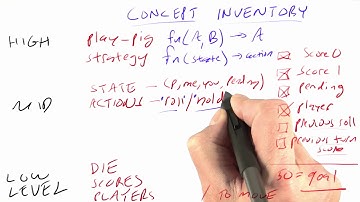 CONCEPT INVENTORY
HIGH
play-pig fn(A, B) → A
strategy fn(state) → action
Score 0
Score 1
pending
player
previous roll
previous turn
score
STATE - (p, me, you, pending)
MID
ACTIONS - 'roll' 'hold'
LOW
LEVEL
DIE
SCORES
PLAYERS / TO MOVE
50 = goal